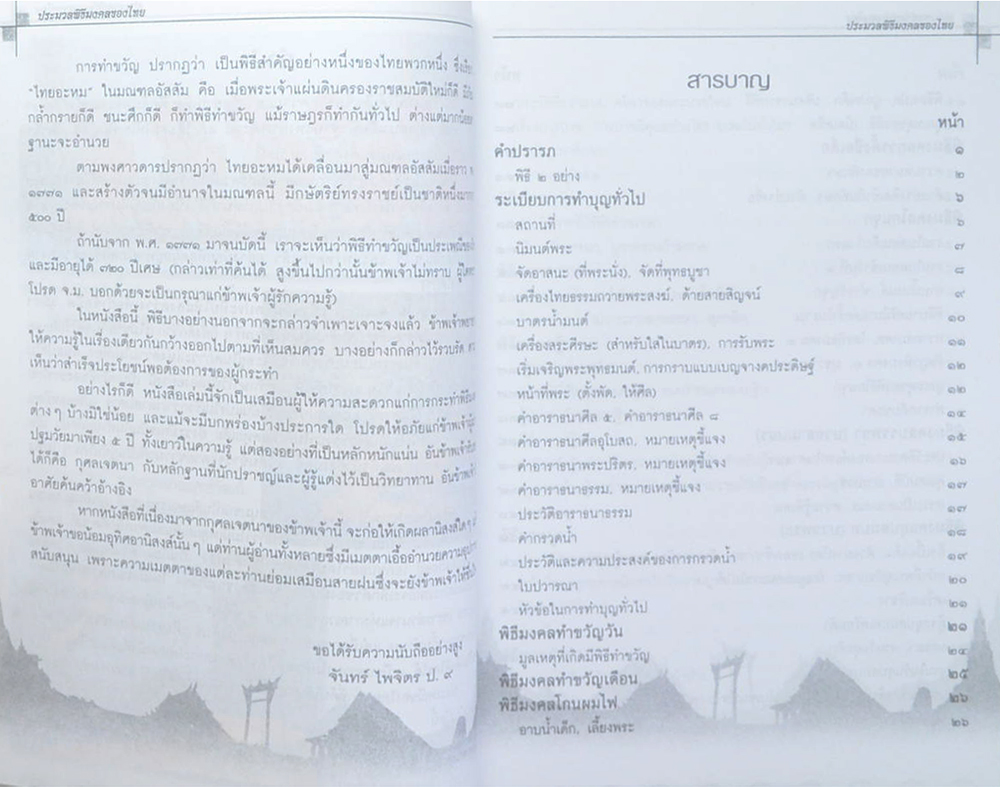 ประมวลพิธีมงคลของไทย
การทำขวัญ ปรากฏว่า เป็นพิธีสำคัญอย่างหนึ่งของไทยพวกหนึ่ง
"ไทยอะหม" ในมณฑลอัสสัม คือ เมื่อพระเจ้าแผ่นดินครองราชสมบัติใหม่ก็ดี
กล้ำกรายก็ดี ชนะศึกก็ดี ก็ทำพิธีทำขวัญ แม้ราษฎรก็ทำกันทั่วไป ต่างแต่มาก
ฐานะจะอำนวย
ตามพงศาวดารปรากฏว่า ไทยอะหมได้เคลื่อนมาสู่มณฑลอัสสัมเมื่อราว
๑๗๗๑ และสร้างตัวจนมีอำนาจในมณฑลนี้ มีกษัตริย์ทรงราชย์เป็นชาติหนึ่ง
๕๐๐ ปี
ถ้านับจาก พ.ศ. ๑๗๗๑ มาจนบัดนี้ เราจะเห็นว่าพิธีทำขวัญเป็นประเพณี
และมีอายุได้ ๗๒๐ ปีเศษ (กล่าวเท่าที่ค้นได้ สูงขึ้นไปกว่านั้นข้าพเจ้าไม่ทราบ
โปรด จ.ม. บอกด้วยจะเป็นกรุณาแก่ข้าพเจ้าผู้รักความรู้)
ในหนังสือนี้ พิธีบางอย่างนอกจากจะกล่าวจำเพาะเจาะจงแล้ว
ให้ความรู้ในเรื่องเดียวกันกว้างออกไปตามที่เห็นสมควร บางอย่างก็กล่าวไว้รวบรัด
เห็นว่าสำเร็จประโยชน์พอต้องการของผู้กระทำ
อย่างไรก็ดี หนังสือเล่มนี้จักเป็นเสมือนผู้ให้ความสะดวกแก่การกระทำพิธี
ต่างๆ บ้างมิใช่น้อย และแม้จะมีบกพร่องบ้างประการใด โปรดให้อภัยแก่ข้าพเจ้า
ปฐมวัยมาเพียง ๕ ปี ทั้งเยาว์ในความรู้ แต่สองอย่างที่เป็นหลักหนักแน่น
ได้ก็คือ กุศลเจตนา กับหลักฐานที่นักปราชญ์และผู้รู้แต่งไว้เป็นวิทยาทาน
อาศัยค้นคว้าอ้างอิง
หากหนังสือที่เนื่องมาจากกุศลเจตนาของข้าพเจ้านี้ จะก่อให้เกิดผลานิสงส์ใดๆ
ข้าพเจ้าขอน้อมอุทิศอานิสงส์นั้นๆ แด่ท่านผู้อ่านทั้งหลายซึ่งมีเมตตาเอื้ออำนวย
สนับสนุน เพราะความเมตตาของแต่ละท่านย่อมเสมือนสายฝนซึ่งจะยังข้าพเจ้า
ขอได้รับความนับถืออย่างสูง
จันทร์ ไพจิตร ป. ๙
ประมวลพิธีมงคลของไทย
สารบาญ
หน้า
คำปรารภ ๑
พิธี ๒ อย่าง ๒
ระเบียบการทำบุญทั่วไป ๖
สถานที่ ๖
นิมนต์พระ ๗
จัดอาสนะ (ที่พระนั่ง), จัดที่พุทธบูชา ๘
เครื่องไทยธรรมถวายพระสงฆ์, ด้ายสายสิญจน์ ๙
บาตรน้ำมนต์ ๑๐
เครื่องสระศีรษะ (สำหรับใส่ในบาตร), การรับพระ ๑๑
เริ่มเจริญพระพุทธมนต์, การกราบแบบเบญจางคประดิษฐ์ ๑๒
หน้าที่พระ (ตั้งพัด, ให้ศีล) ๑๒
คำอาราธนาศีล ๕, คำอาราธนาศีล ๘ ๑๔
คำอาราธนาศีลอุโบสถ, หมายเหตุชี้แจง ๑๕
คำอาราธนาพระปริตร, หมายเหตุชี้แจง ๑๖
คำอาราธนาธรรม, หมายเหตุชี้แจง ๑๗
ประวัติอาราธนาธรรม ๑๗
คำกรวดน้ำ ๑๘
ประวัติและความประสงค์ของการกรวดน้ำ ๑๙
ใบปวารณา ๒๐
หัวข้อในการทำบุญทั่วไป ๒๑
พิธีมงคลทำขวัญวัน ๒๑
มูลเหตุที่เกิดมีพิธีทำขวัญ ๒๔
พิธีมงคลทำขวัญเดือน ๒๕
พิธีมงคลโกนผมไฟ ๒๖
อาบน้ำเด็ก, เลี้ยงพระ ๒๖